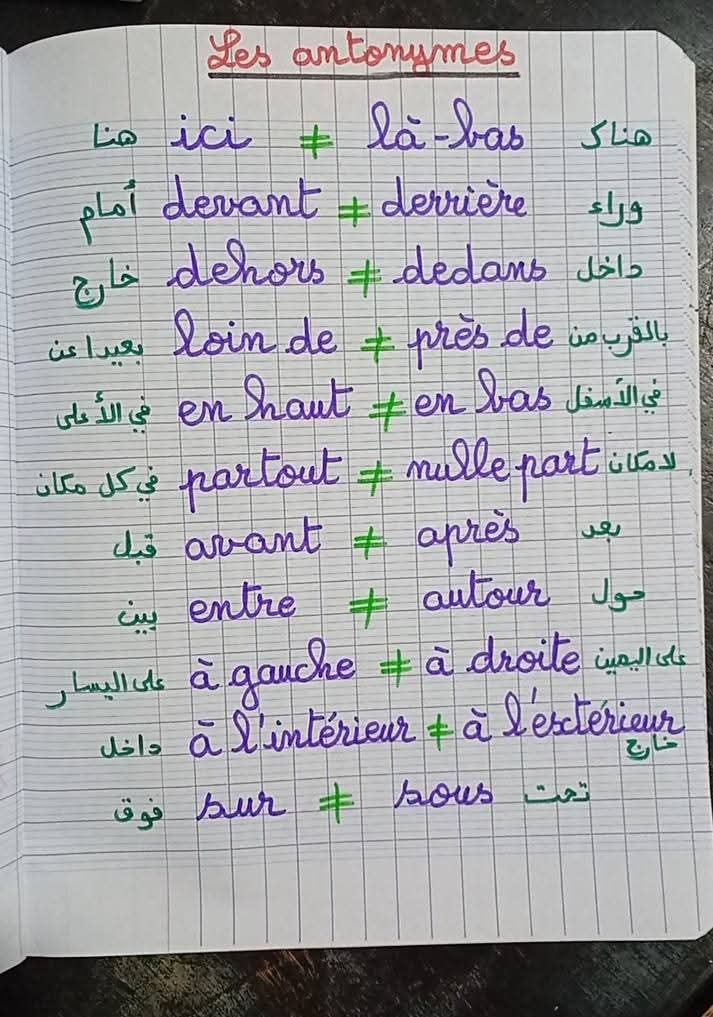 Les antonymes
هنا ici ≠ là-bas هناك
أمام devant ≠ derrière وراء
خارج dehors ≠ dedans داخل
بعيدا عن loin de ≠ près de بالقرب من
في الأعلى en haut ≠ en bas في الأسفل
في كل مكان partout ≠ nulle part لا مكان
قبل avant ≠ après بعد
بين entre ≠ autour حول
على اليسار à gauche ≠ à droite على اليمين
داخل à l'intérieur ≠ à l'extérieur خارج
فوق sur ≠ sous تحت